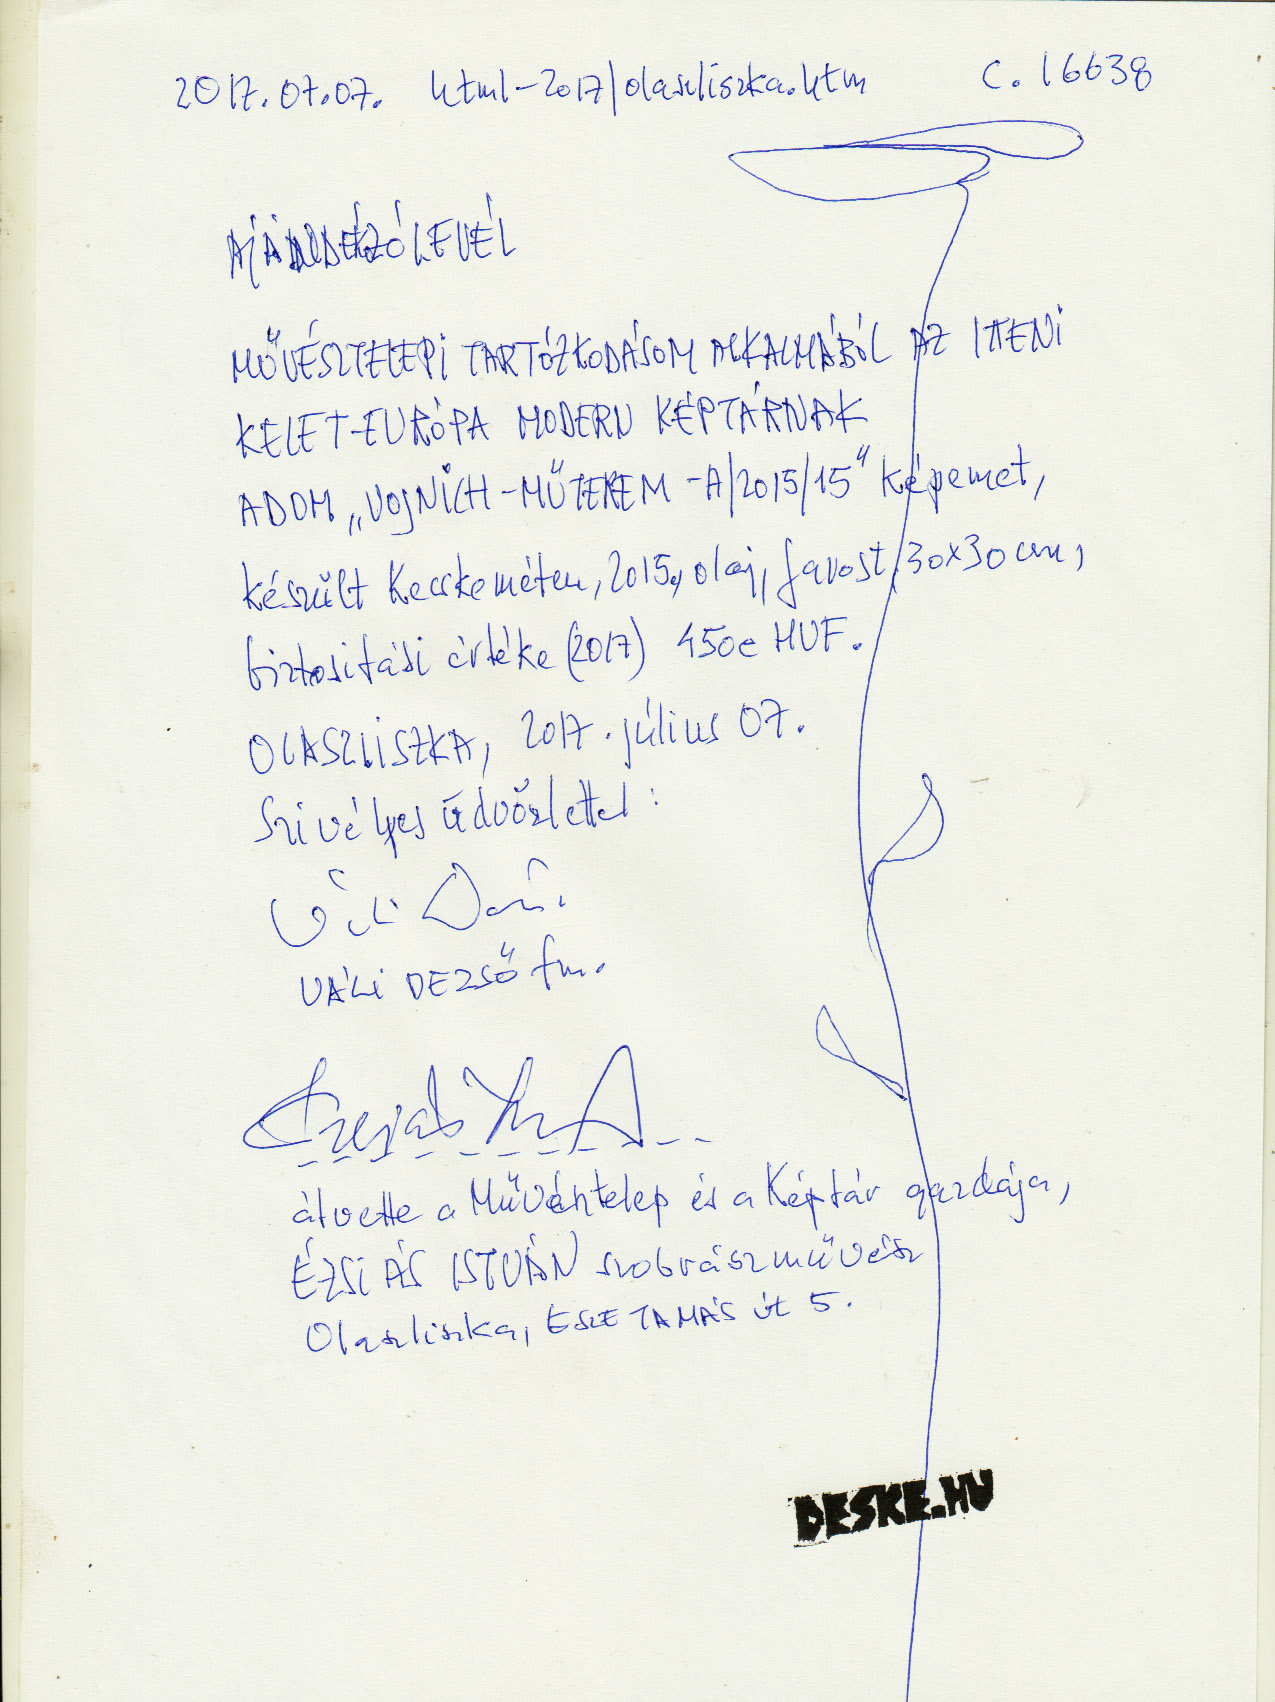 2017.07.07. html-2017/olaszliszka.htm C. 16638
AJÁNDÉKOZÓLEVÉL
MŰVÉSZTELEPI TARTÓZKODÁSOM ALKALMÁBÓL AZ ITTENI
KELET-EURÓPA MODERN KÉPTÁRNAK
ADOM „VOJNICH-MŰTEREM -A/2015/15" képemet,
készült Kecskeméten, 2015, olaj, farost, 30x30 cm,
biztosítási értéke (2017) 450e HUF.
OLASZLISZKA, 2017. július 07.
Szivélyes üdvözlettel:
Váli Dezső
VÁLI DEZSŐ fm.
átvette a Művésztelep és a Képtár gazdája,
ÉZSIÁS ISTVÁN szobrászművész
Olaszliszka, ESZE TAMÁS út 5.
DESKE.HU